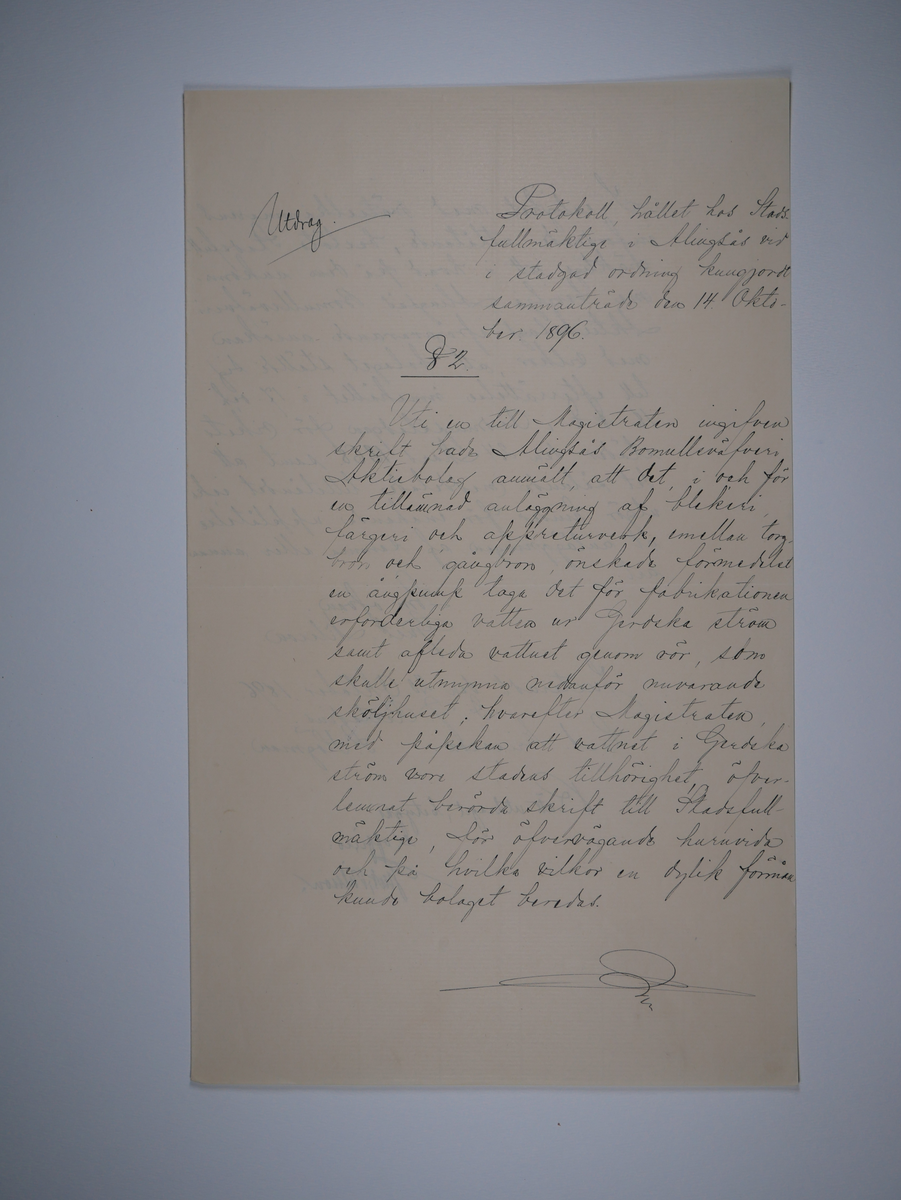 Utdrag.
Protokoll, hållet hos Stads-
fullmäktige i Alingsås vid
i stadgad ordning kungjordt
sammanträde den 14 Okto-
ber 1896.
§ 2.
Uti en till Magistraten ingifven
skrift hade Alingsås Bomullsväfveri
Aktiebolag anmält, att det, i och för
en tillämnad anläggning af blekeri,
färgeri och appreturverk, emellan torg-
bron och gångbron, önskade förmedelst
en ångpump taga det för fabrikationen
erforderliga vatten ur Gerdska ström
samt afleda vattnet genom rör, som
skulle utmynna nedanför nuvarande
sköljhuset; hvarefter Magistraten,
med påpekan att vattnet i Gerdska
ström vore stadens tillhörighet, öfver-
lemnat berörda skrift till Stadsfull-
mäktige, för öfvervägande huruvida
och på hvilka vilkor en dylik förmån
kunde bolaget beredas.